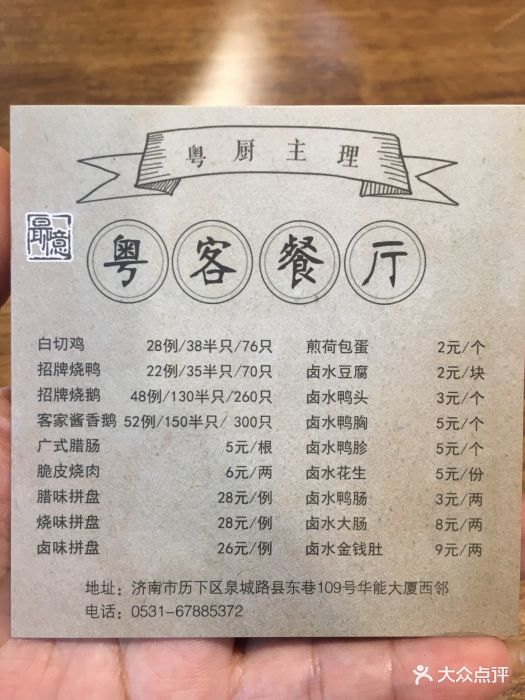 粤厨主理
最忆
粤客餐厅
白切鸡 28例/38半只/76只
招牌烧鸭 22例/35半只/70只
招牌烧鹅 48例/130半只/260只
客家酱香鹅 52例/150半只/ 300只
广式腊肠 5元/根
脆皮烧肉 6元/两
腊味拼盘 28元/例
烧味拼盘 28元/例
卤味拼盘 26元/例
煎荷包蛋 2元/个
卤水豆腐 2元/块
卤水鸭头 3元/个
卤水鸭胸 5元/个
卤水鸭胗 5元/个
卤水花生 5元/份
卤水鸭肠 3元/两
卤水大肠 8元/两
卤水金钱肚 9元/两
地址: 济南市历下区泉城路县东巷109号华能大厦西邻
电话: 0531-67885372
大众点评